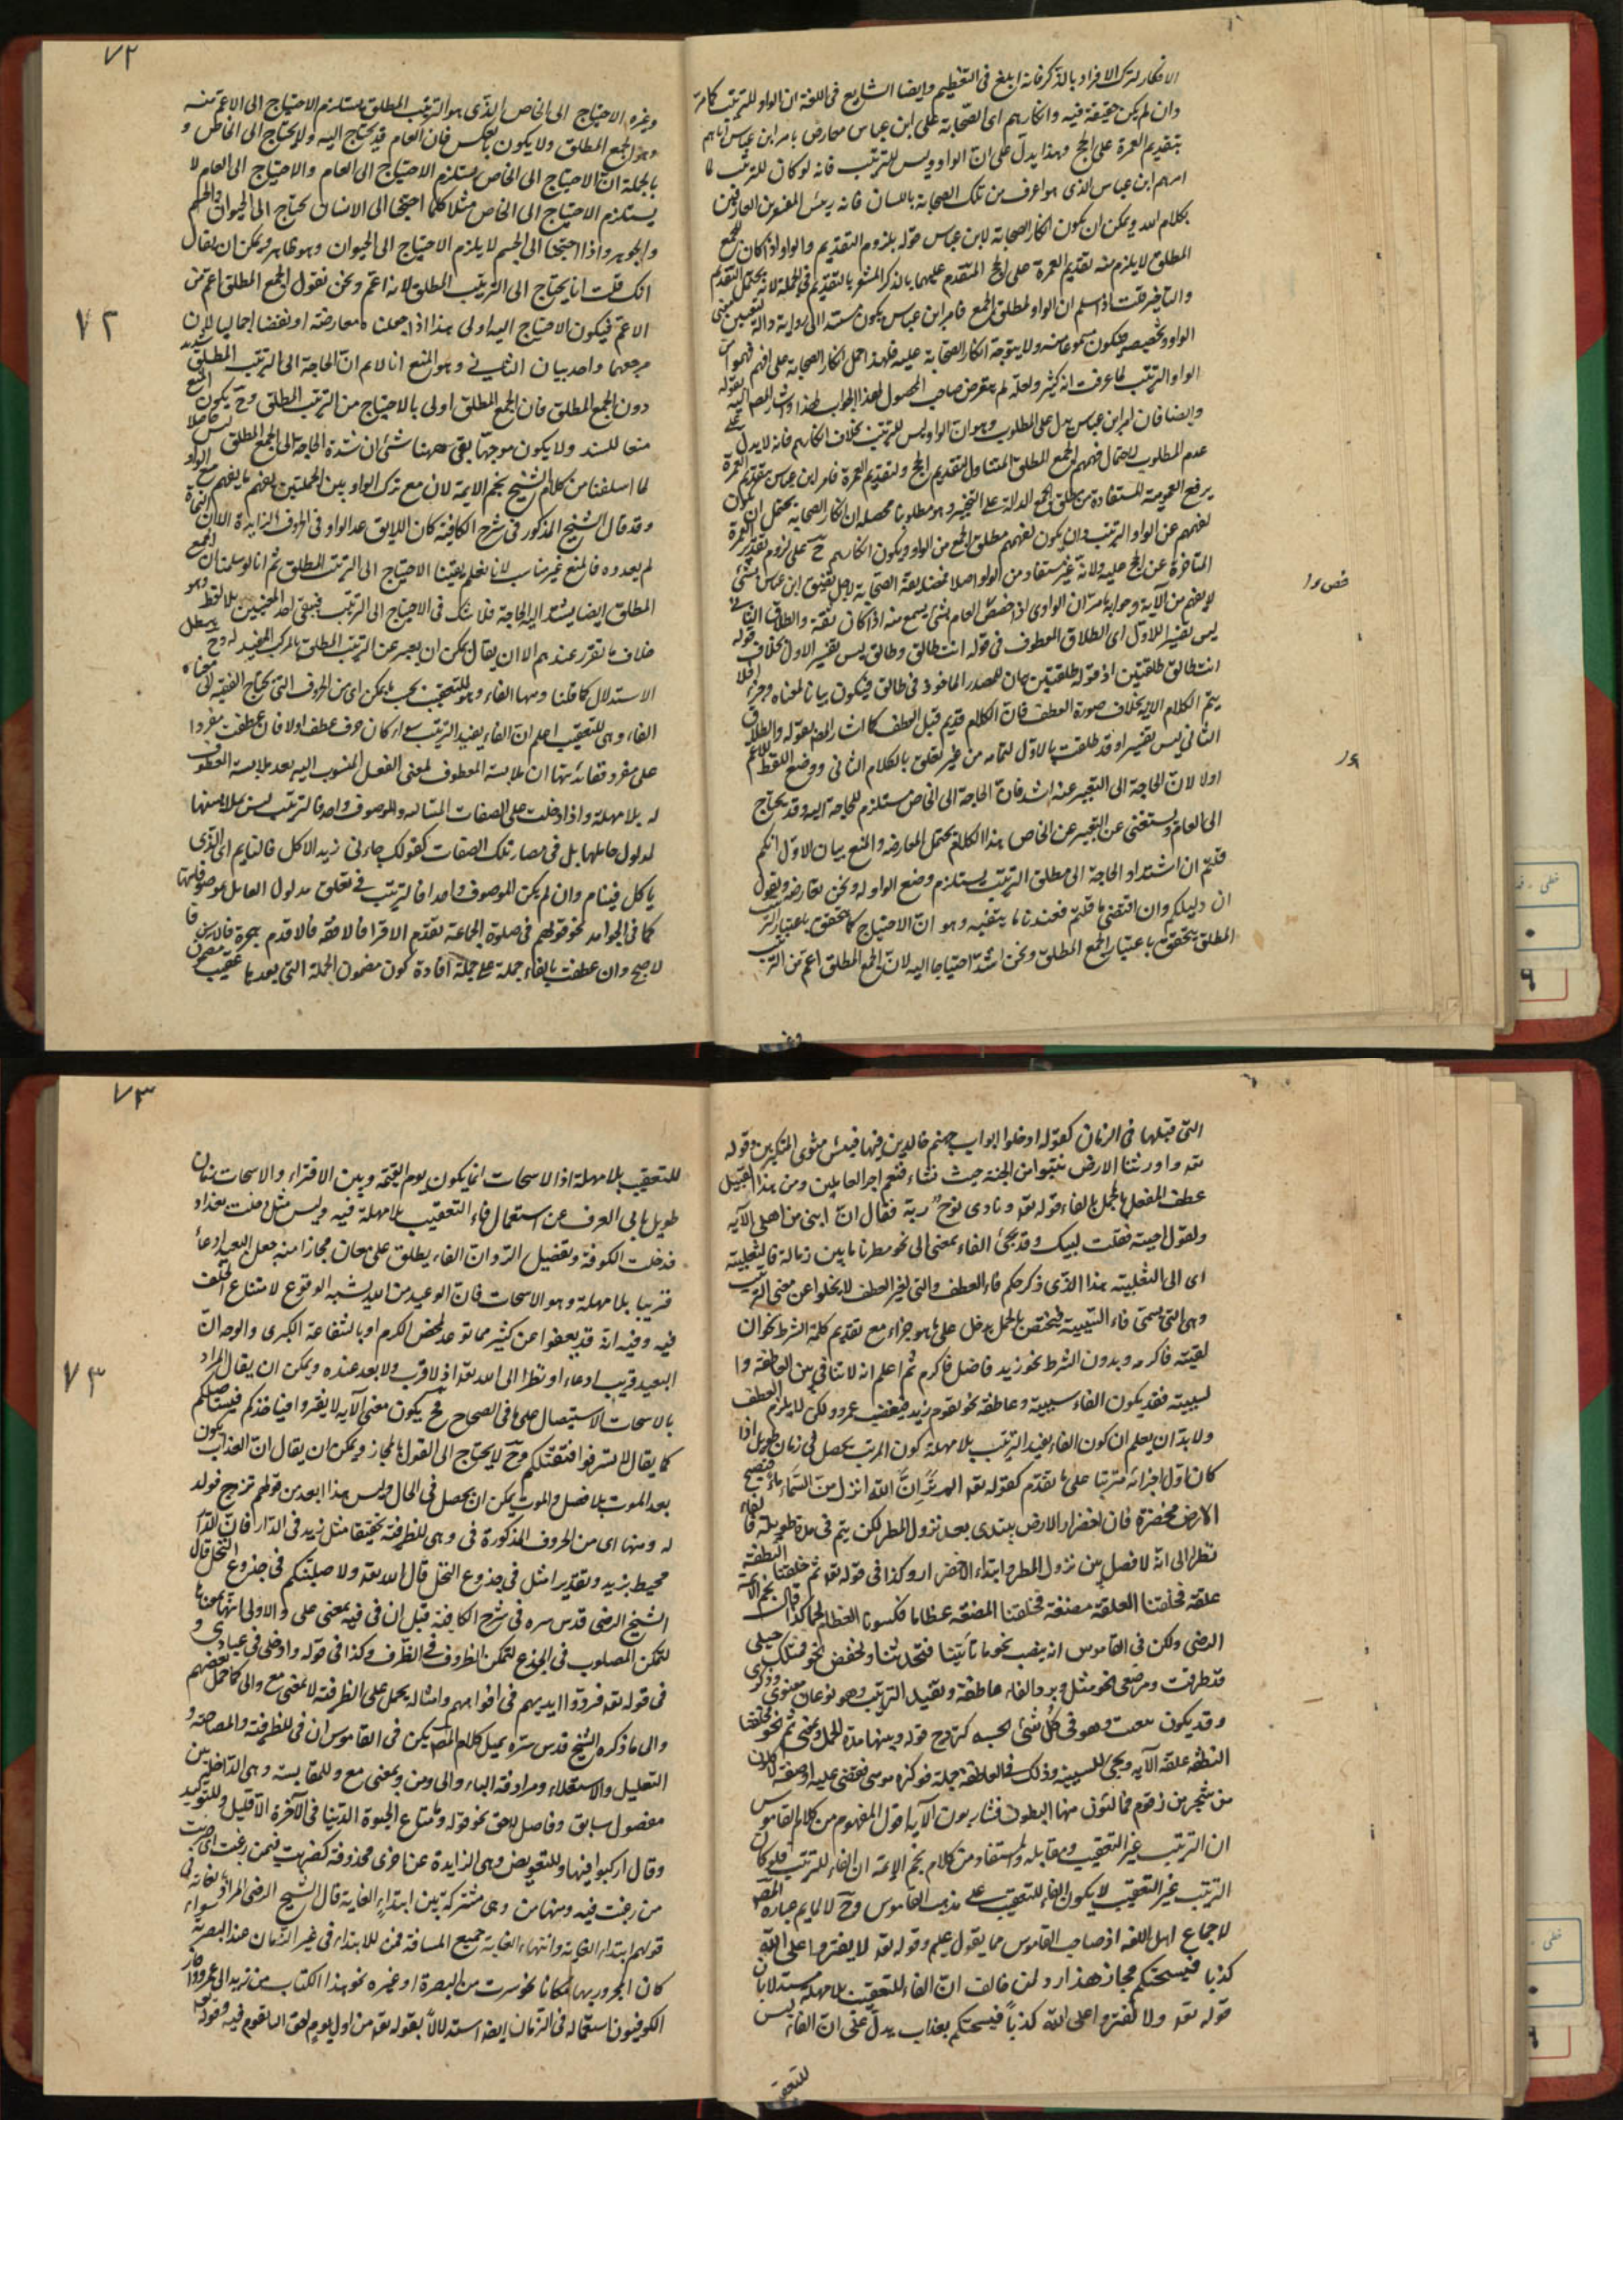 الافكار لترك الافراد بالذكر فانه ابلغ فى التعظيم وايضا الشايع فى اللغة ان الواو للترتيب كما مر
وان لم يكن حقيقة فيه وانكارهم اى الصحابة على ابن عباس معارض بامر ابن عباس اياهم
بتقديم العمرة على الحج وهذا يدل على ان الواو ليس للترتيب فانه لو كان للترتيب لما
امرهم ابن عباس الذى هو اعرف من تلك الصحابة باللسان فانه رئيس المفسرين العارفين
بكلام الله ويمكن ان يكون انكار الصحابة لابن عباس قوله بلزوم التقديم والواو اذ كان للجمع
المطلق لا يلزم منه تقديم العمرة على الحج المتقدم عليها بالذكر المشعر بالتقديم فى الجملة لانه يحتمل التقدم
والتأخير قلت اذ اسلم ان الواو لمطلق الجمع فامر ابن عباس يكون مستندا الى رواية دالة
الواو وتخصيصه فتكون مسموعا منه ولا يتوجه انكار الصحابة عليه فلهذا احمل انكار الصحابة على انهم فهموا من
الواو الترتيب لما عرفت انه كثير ولعله لم يتعرض صاحب المحصول لهذا الجواب لهذا واشار المص اليه بقوله
وايضا فان امر ابن عباس يدل على المطلوب وهو ان الواو ليس للترتيب بخلاف انكارهم فانه لا يدل على
عدم المطلوب لاحتمال فهمهم الجمع المطلق المتناول لتقديم الحج ولتقديم العمرة فامر ابن عباس بتقديم العمرة
يرفع العمومية المستفادة من مطلق الجمع الدلالة على التخيير وهو مطلوبنا محصله ان انكار الصحابة يحتمل ان يكون
لفهمهم عن الواو الترتيب وان يكون لفهمهم مطلق الجمع من الواو ويكون انكارهم ح على لزوم تقديم العمرة
المتأخرة عن الحج عليه ولانه غير مستفاد من الواو اصلا
لا يفهم من الآية وجوابه ما مر ان الراوى اذا خصص العام بشئ يسمع منه اذا كان ثقة والطلاق الثانى
ليس تفسير للاول اى الطلاق المعطوف فى قوله انت طالق وطالق ليس تفسير الاول بخلاف قوله
انت طالق طلقتين اذ قوله طلقتين بيان للمصدر الماخوذ فى طالق فيكون بيانا لمعناه وجزء فلا
يتم الكلام الا به بخلاف صورة العطف فان الكلام قد تم قبل العطف كما اشار المص بقوله والطلاق
الثانى ليس تفسيرا وقد طلقت بالاول لتمامه من غير تعلق بالكلام الثانى ووضع اللفظ للاعم
اولا لان الحاجة الى التعبير عنه اشد فان الحاجة الى الخاص مستلزم للحاجة اليه وقد يحتاج
الى العام ويستغنى عن التعبير عن الخاص هذا الكلام يحتمل المعارضة والمنع بيان الاول انكم
قلتم ان اشتداد الحاجة الى مطلق الترتيب يستلزم وضع الواو له ونحن نعارضه ونقول
ان دليلكم وان اقتضى ما قلتم فعندنا ما ينفيه وهو ان الاحتياج كما يتحقق باعتبار الترتيب
المطلق يتحقق باعتبار الجمع المطلق ونحن اشد احتياجا اليه لان الجمع المطلق اعم من الترتيب
وغيره
٧٢
وغيره الاحتياج الى الخاص الذى هو الترتيب المطلق يستلزم الاحتياج الى الاعم منه
وهو الجمع المطلق ولا يكون بالعكس فان العام قد يحتاج اليه ولا يحتاج الى الخاص و
بالجملة ان الاحتياج الى الخاص يستلزم الاحتياج الى العام والاحتياج الى العام لا
يستلزم الاحتياج الى الخاص مثلا كلما احتيج الى الانسان يحتاج الى الحيوان والجسم
والجوهر واذا احتجنا الى الجسم لا يلزم الاحتياج الى الحيوان وهو ظاهر ويمكن ان يقال
انك قلت انا يحتاج الى الترتيب المطلق لانه اعم ونحن نقول الجمع المطلق اعم من
الاعم فيكون الاحتياج اليه اولى هذا اذا جعلناه معارضة او نقضا اجماليا لان
مرجعهما واحد بيان الثانى وهو المنع انا لا نم ان الحاجة الى الترتيب المطلق
دون الجمع المطلق فان الجمع المطلق اولى بالاحتياج من الترتيب المطلق وح يكون
منعا للسند ولا يكون موجها بقى ههنا شئ ان شدة الحاجة الى الجمع المطلق ليس
لما اسلفنا من كلام الشيخ نجم الائمة لان مع ترك الواو بين الجملتين يفهم ما يفهم مع الواو
وقد قال الشيخ المذكور فى شرح الكافية كان اللايق عد الواو فى الحروف الزايدة الا ان النحاة
لم يعدوه فالمنع غير مناسب لانا نعلم يقينا الاحتياج الى الترتيب المطلق ثم انا لو سلمنا ان الجمع
المطلق ايضا يشتد اليه الحاجة فلا شك فى الاحتياج الى الترتيب فيبقى احد المعنيين بلا لفظ وهو
خلاف ما تقرر عندهم الا ان يقال يمكن ان يعبر عن الترتيب المطلق بالمركب المفيد له وح يبطل
الاستدلال كما قلنا ومنها الفاء وهو للتعقيب بحسب ما يمكن اى من الحروف التى يحتاج الفقيه الى معناه
الفاء وهى للتعقيب اعلم ان الفاء يفيد الترتيب سواء كان حرف عطف اولا فان عطفت مفردا
على مفرد ففائدتها ان ملابسة المعطوف لمعنى الفعل المنسوب اليه بعد ملابسة المعطوف
له بلا مهلة واذا دخلت على الصفات المتتالية والموصوف واحد فالترتيب ليس بملابستها
لمدلول عاملها بل فى مصادر تلك الصفات كقولك جاءنى زيد الاكل فالنايم اى الذى
ياكل فينام وان لم يكن الموصوف واحدا فالترتيب فى تعلق مدلول العامل بموصوفاتها
كما فى الجوامد نحو قولهم فى صلوة الجماعة تقدم الاقرا فالافقه فالاقدم هجرة فالاسن فا
لاصبح وان عطفت بالفاء جملة على جملة افادة كون مضمون الجملة التى بعدها عقيب مضمون
٧٢
التى قبلها فى الزمان كقوله ادخلوا ابواب جهنم خالدين فيها فبئس مثوى المتكبرين وقوله
تعه واورثنا الارض نتبوا من الجنة حيث نشاء فنعم اجر العاملين ومن هذا القبيل
عطف المفصل بالمجمل بالفاء قوله تعه ونادى نوح ربه فقال ان ابنى من اهلى الآية
وتقول اجبته فقلت لبيك وقد يجئ الفاء بمعنى الى نحو مطرنا ما بين زبالة فالثعلبية
اى الى الثعلبية هذا الذى ذكر حكم فاء العطف والتى لغير العطف لا يخلوا عن معنى الترتيب
وهى التى يسمى فاء السببية فيختص بالجمل يدخل على ما هو جزاء مع تقديم كلمة الشرط نحو ان
لقيته فاكرمه وبدون الشرط نحو زيد فاضل فاكرم ثم اعلم انه لا تنافى بين العاطفة وا
لسببية فقد يكون الفاء سببية وعاطفة نحو يقوم زيد فيغضب عمرو ولكن لا يلزم العطف
ولا بد ان يعلم ان كون الفاء يفيد الترتيب بلا مهلة كون المرتب يحصل فى زمان طويل اذا
كان اول اجزائه مترتبا على ما تقدم كقوله تعه الم تر ان الله انزل من السماء ماء فتصبح
الارض مخضرة فان اخضرار الارض يبتدى بعد نزول المطر لكن يتم فى مدة طويلة فالفاء
نظرا الى انه لا فصل بين نزول المطر وابتداء الاخضرار وكذا فى قوله تعه ثم خلقنا النطفة
علقة فخلقنا العلقة مضغة فخلقنا المضغة عظاما فكسونا العظام لحما كذا قال نجم الائمة
الرضى ولكن فى القاموس انه ينصب نحو ما تأتينا فتحدثنا ويخفض نحو فمثلك حبلى
قد طرقت ومرضعى نحو مثل وبرد الفاء عاطفة وتفيد الترتيب وهو نوعان معنوى وذكرى
وقد يكون وهو فى كل شئ بحسبه كتزوج فولد وبينهما مدة الحمل وبمعنى ثم نحو فخلقنا
النطفة علقة الآية ويجئ للسببية وذلك فى العاطفة جملة فوكزه موسى فقضى عليه او صفة لاكلون
من شجر من زقوم فمالئون منها البطون فشاربون الآية اقول المفهوم من كلام القاموس
ان الترتيب غير التعقيب ومقابله والمستفاد من كلام نجم الائمة ان الفاء للترتيب فلو كان
الترتيب غير التعقيب لا يكون الفاء للتعقيب على مذهب القاموس وح لا يلايم عبارة المص
لاجماع اهل اللغة اذ صاحب القاموس مما يقول عليهم وقوله تعه لا يفتروا على الله
كذبا فيسحتكم مجاز هذا رد لمن خالف ان الفاء للتعقيب بلا مهلة مستدلا بان
قوله تعه ولا تفتروا على الله كذبا فيسحتكم بعذاب يدل على ان الفاء ليس
للتعقيب
٧٣
للتعقيب بلا مهلة اذ الاسحات انما يكون يوم القيمة وبين الافتراء والاسحات زمان
طويل يابى العرف عن استعمال فاء التعقيب بلا مهلة فيه وليس مثل دخلت بغداد
فدخلت الكوفة وتفصيل الرد ان الفاء يطلق على معان مجازا منه جعل البعيد ادعاء
قريبا بلا مهلة وهو الاسحات فان الوعيد من الله يشبه الوقوع لامتناع الخلف
فيه وفيه انه قد يعفوا عن كثير مما توعد لمحض الكرم او بالشفاعة الكبرى والوجه ان
البعيد قريب ادعاء او نظرا الى الله تعه اذ لا قرب ولا بعد عنده ويمكن ان يقال المراد
بالاسحات الاستيصال على ما فى الصحاح فح يكون معنى الآية لا يفتروا فيناخذكم فيستاصلكم
كما يقال لا تسرفوا فنقتلكم وح لا يحتاج الى القول بالمجاز ويمكن ان يقال ان العذاب يكون
بعد الموت بلا فصل والموت يمكن ان يحصل فى الحال وليس هذا ابعد من قولهم تزوج فولد
له ومنها اى من الحروف المذكورة فى وهى للظرفية تحقيقا مثل زيد فى الدار فان الدار
محيط بزيد وتقديرا مثل فى جذوع النخل قال الله تعه ولاصلبنكم فى جذوع النخل قال
الشيخ الرضى قدس سره فى شرح الكافية قيل ان فى فيه بمعنى على والاولى انها بمعناها
لتمكن المصلوب فى الجذع لتمكن المظروف فى الظرف وكذا فى قوله وادخلى فى عبادى و
فى قوله تعه فردوا ايديهم فى افواههم وامثاله يحمل على الظرفية لا بمعنى مع والى كما حمل بعضهم
والى ما ذكره الشيخ قدس سره يميل كلام المص يكن فى القاموس ان فى للظرفية والمصاحبة و
التعليل والاستعلاء ومرادفة الباء والى ومن وبمعنى مع وللمقايسة وهى الداخلة بين
مفضول سابق وفاصل لاحق نحو قوله وما متاع الحيوة الدنيا فى الآخرة الا قليل وللتوكيد
وقال اركبوا فيها وللتعويض وهى الزايدة عن اخرى محذوفة كضربت فيمن رغبت اى ضربت
من رغبت فيه ومنها من وهى مشتركة بين ابتداء الغاية قال الشيخ الرضى المراد بالغاية فى
قولهم ابتداء الغاية وانتهاء الغاية جميع المسافة فمن للابتداء فى غير الزمان عند البصرية سواء
كان المجرور بها مكانا نحو سرت من البصرة او غيره نحو هذا الكتاب من زيد الى عمرو واجاز
الكوفيون استعماله فى الزمان ايضا استدلالا بقوله تعه من اول يوم احق ان تقوم فيه وقوله تعه
٧٣